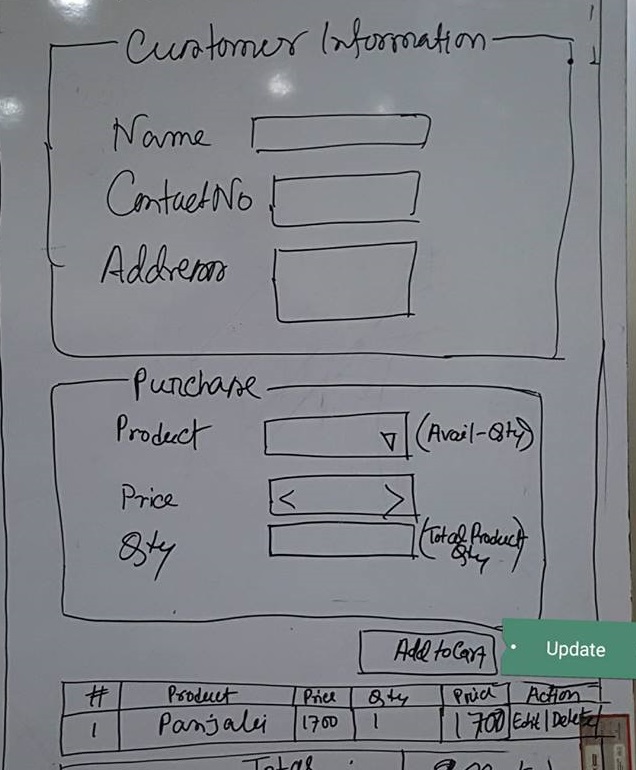 Customer Information
Name
Contact No
Address
Purchase
Product (Avail-Qty)
Price < >
Qty (Total Product Qty)
Add to Cart
Update
# Product Price Qty Price Action
1 Panjabi 1700 1 1700 Edit | Delete
Total :